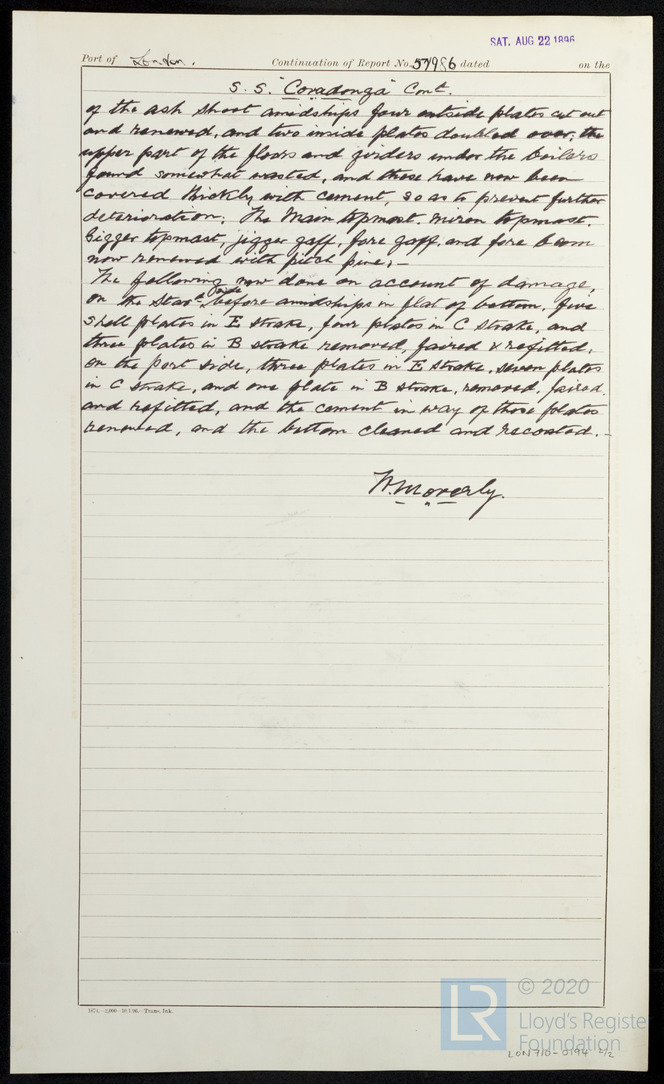 SAT. AUG 22 1896
Port of London. Continuation of Report No. 57986 dated on the
S. S. "Covadonga" Cont.
of the ash shoot amidships four outside plates cut out
and renewed, and two inside plates doubled over; the
upper part of the floors and girders under the boilers
found somewhat wasted, and these have now been
covered thickly with cement, so as to prevent further
deterioration; The Main topmast, mizen topmast,
Gigger topmast, jigger gaff, fore gaff, and fore boom
now renewed with pitch pine;-
The following now done on account of damage,
on the Starb. side before amidships in flat of bottom, five
shell plates in E strake, four plates in C strake, and
three plates in B strake removed, faired & refitted;
on the port side, three plates in E strake, seven plates
in C strake, and one plate in B strake, removed, faired
and refitted, and the cement in way of those plates
renewed, and the bottom cleaned and recoated.-
W. Moverly.
1874.-2,000-10.1.96.-Trans. Ink.
LR © 2020
Lloyd's Register
Foundation
LON710-0194 2/2